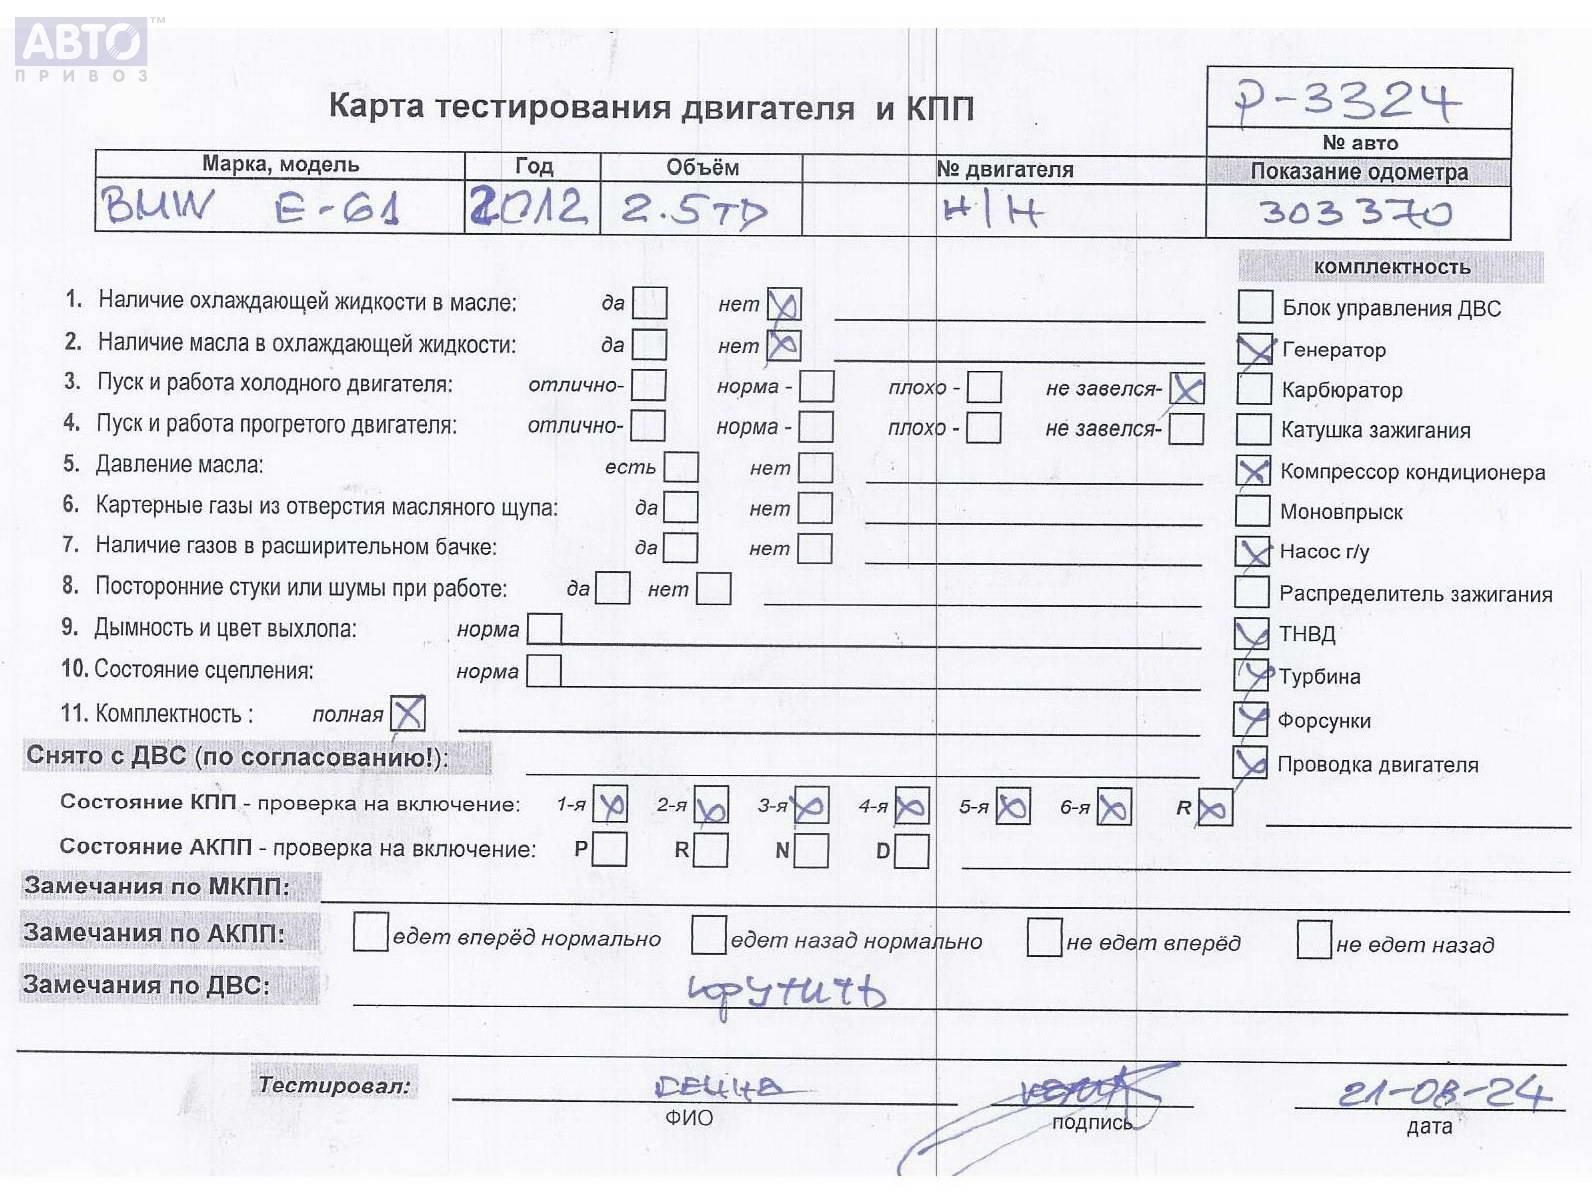 АВТО™
ПРИВОЗ
Карта тестирования двигателя и КПП
P-3324
№ авто
Марка, модель Год Объём № двигателя Показание одометра
BMW E-61 2012 2.5TD Н/Н 303370
комплектность
1. Наличие охлаждающей жидкости в масле: да нет
Блок управления ДВС
2. Наличие масла в охлаждающей жидкости: да нет
Генератор
3. Пуск и работа холодного двигателя: отлично- норма - плохо - не завелся-
Карбюратор
4. Пуск и работа прогретого двигателя: отлично- норма - плохо - не завелся-
Катушка зажигания
5. Давление масла: есть нет
Компрессор кондиционера
6. Картерные газы из отверстия масляного щупа: да нет
Моновпрыск
7. Наличие газов в расширительном бачке: да нет
Насос г/у
8. Посторонние стуки или шумы при работе: да нет
Распределитель зажигания
9. Дымность и цвет выхлопа: норма
ТНВД
10. Состояние сцепления: норма
Турбина
11. Комплектность : полная
Форсунки
Снято с ДВС (по согласованию!):
Проводка двигателя
Состояние КПП - проверка на включение: 1-я 2-я 3-я 4-я 5-я 6-я R
Состояние АКПП - проверка на включение: P R N D
Замечания по МКПП:
Замечания по АКПП: едет вперёд нормально едет назад нормально не едет вперёд не едет назад
Замечания по ДВС:
Тестировал:
21-08-24
ФИО подпись дата